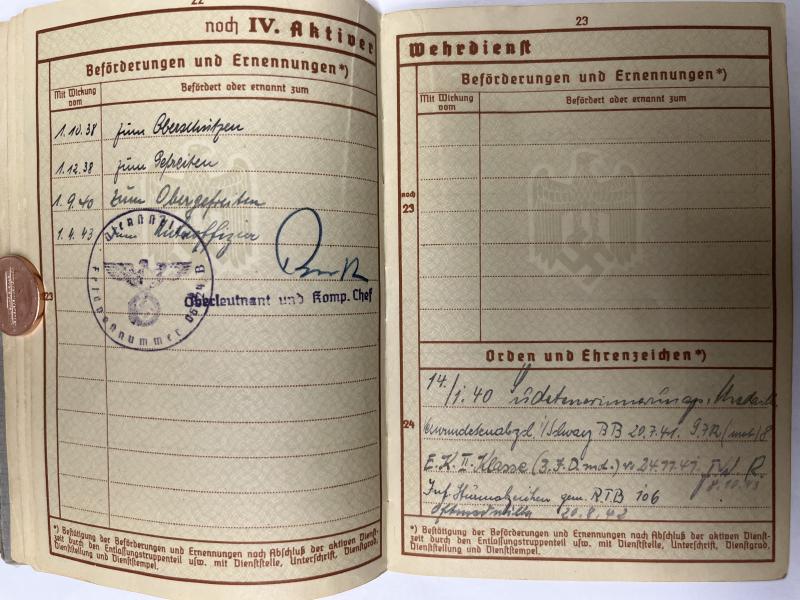 22
noch IV. Aktiver
Beförderungen und Ernennungen*)
Mit Wirkung vom
Befördert oder ernannt zum
1.10.38 zum Oberschützen
1.12.38 zum Gefreiten
1.9.40 zum Obergefreiten
1.4.43 zum Unteroffizier
23
Oberleutnant und Komp. Chef
*) Bestätigung der Beförderungen und Ernennungen nach Abschluß der aktiven Dienst-
zeit durch den Entlassungstruppenteil usw. mit Dienststelle, Unterschrift, Dienstgrad,
Dienststellung und Dienststempel.
23
Wehrdienst
Beförderungen und Ernennungen*)
Mit Wirkung vom
Befördert oder ernannt zum
noch
23
Orden und Ehrenzeichen*)
14./1.40 Sudetenerinnerungs. Medaille
24
Verwundetenabz. i/Schwarz BB 20.7.41.
E.K. II. Klasse (3. I.D. mot.) v. 24.11.41.
Inf. Sturmabzeichen gem. RTB 106
Ostmedaille 20.8.42
*) Bestätigung der Beförderungen und Ernennungen nach Abschluß der aktiven Dienst-
zeit durch den Entlassungstruppenteil usw. mit Dienststelle, Unterschrift, Dienstgrad,
Dienststellung und Dienststempel.